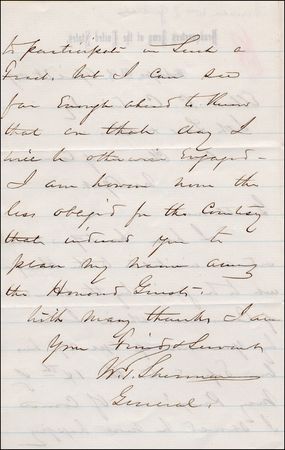 to participate in such a
Treat, but I can see
far enough ahead to know
that on that day I
will be otherwise Engaged -
I am however none the
less obliged for the Courtesy
that induced you to
place my name among
the Honored Guests.
With many thanks I am
Your Friend & Servant
W. T. Sherman
General.